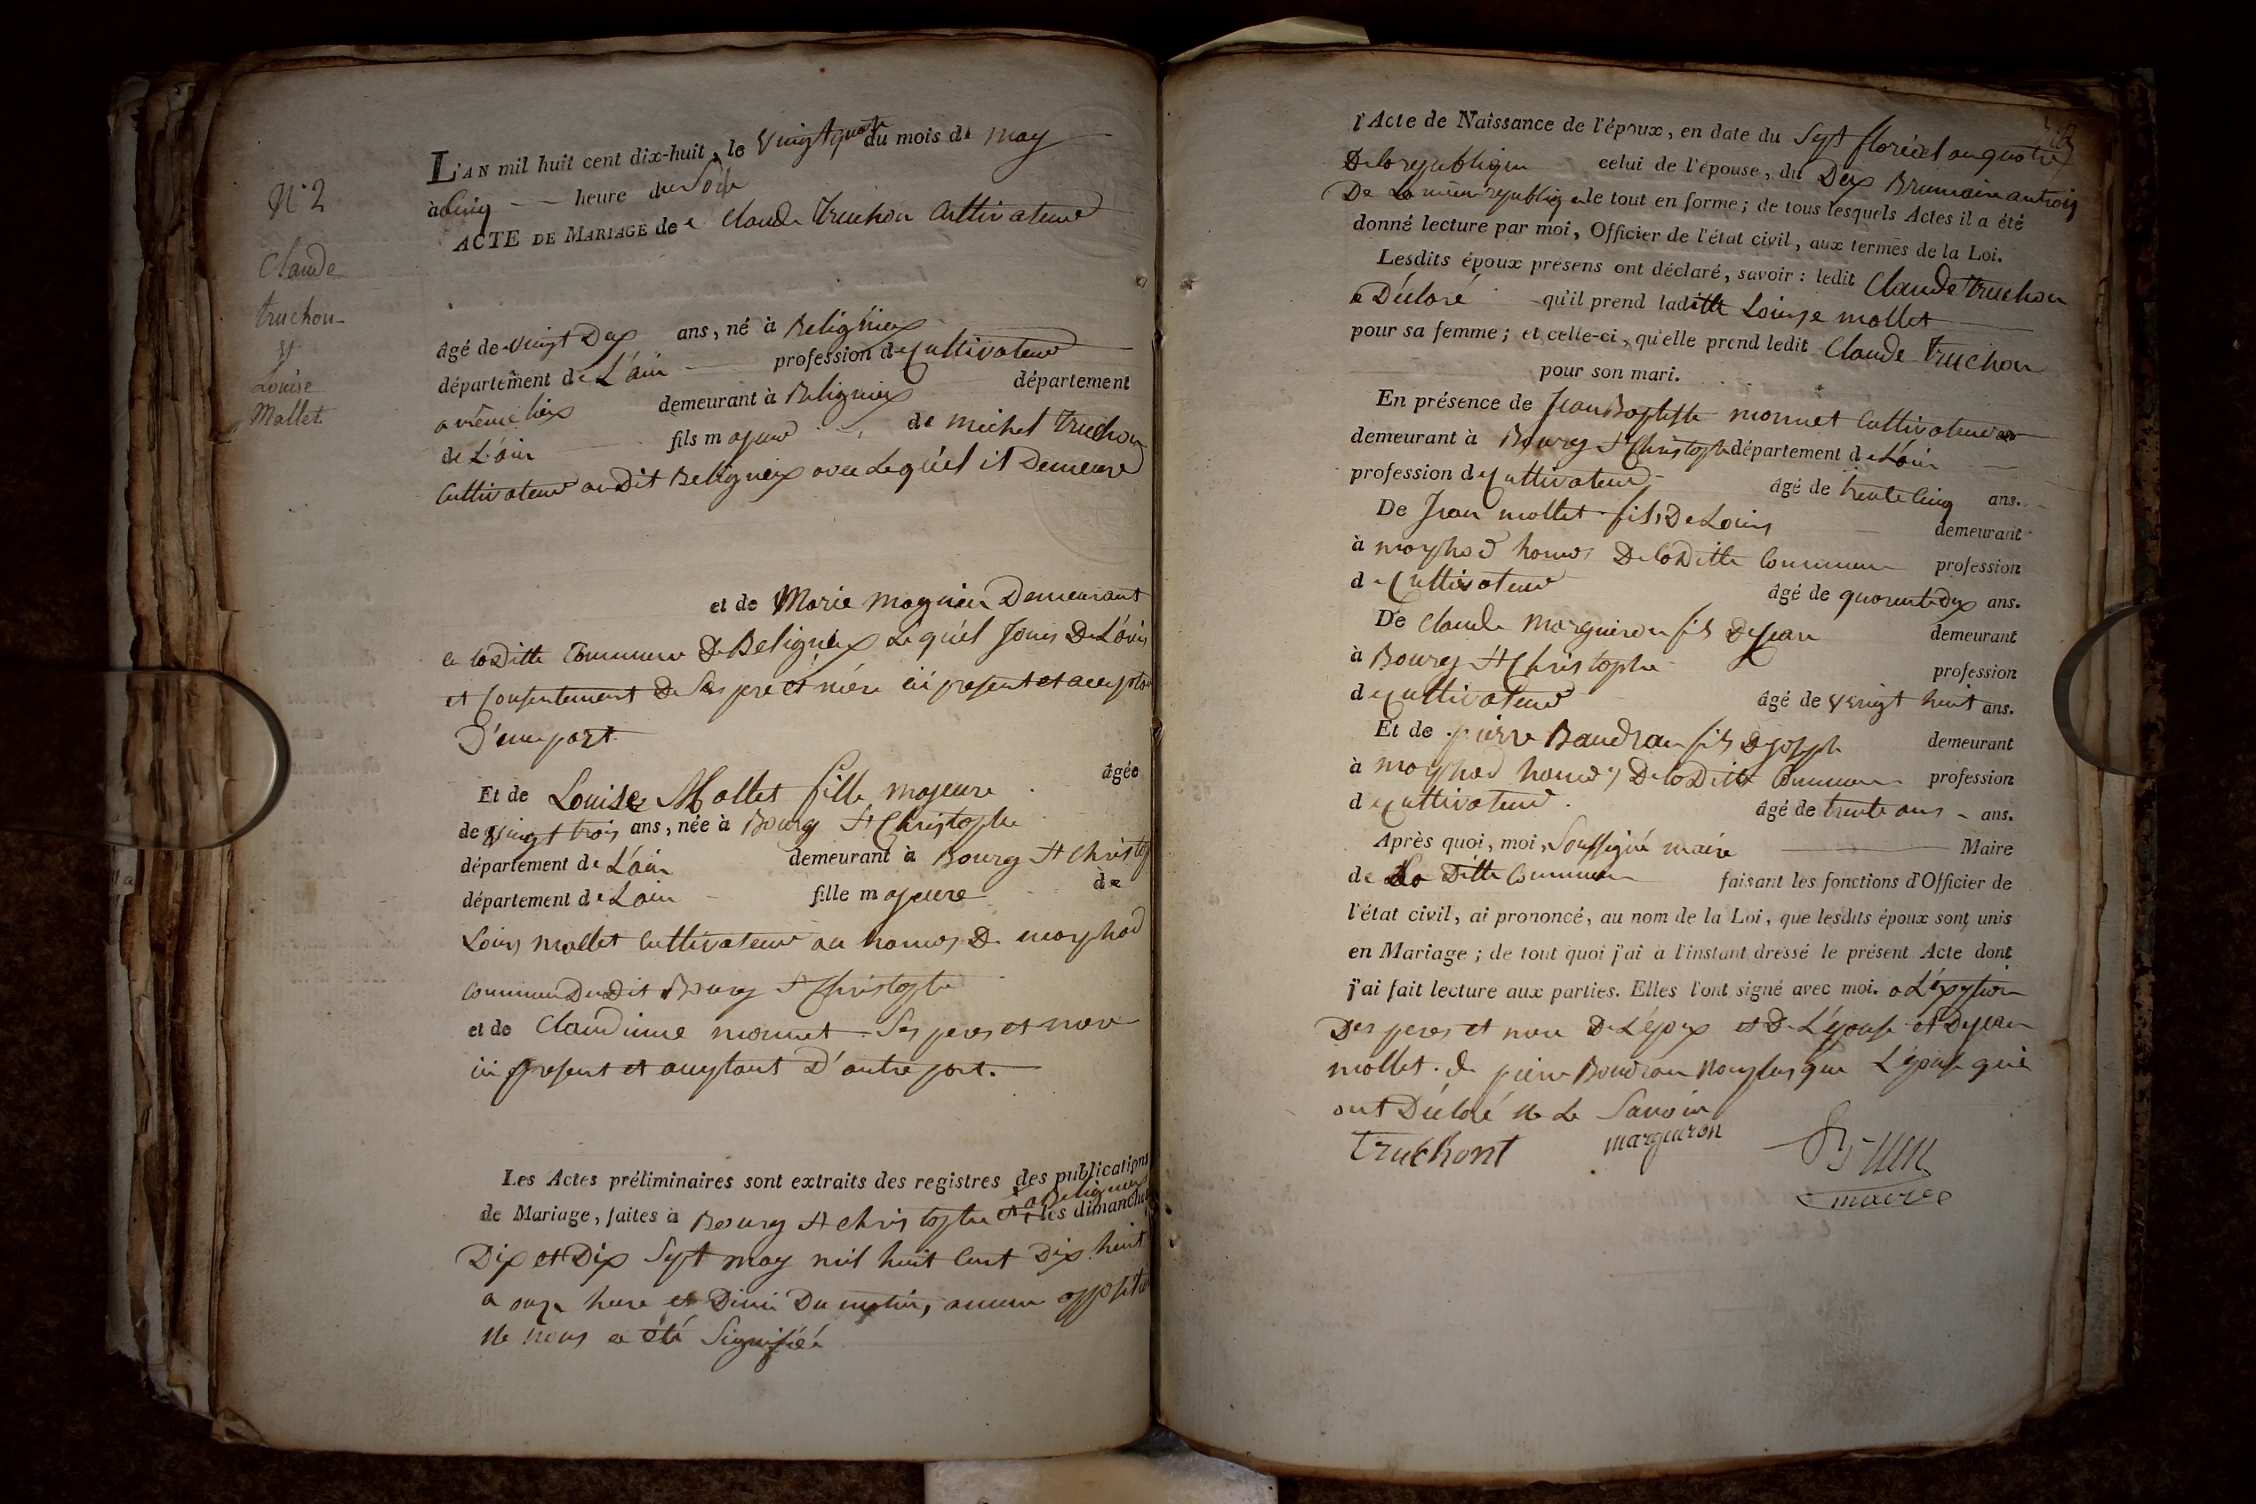 N° 2
Claude
truchon
et
Louise
Mallet
L'AN mil huit cent dix-huit, le vingt quatre du mois de may
à cinq heure du Soir
ACTE DE MARIAGE de Claude truchon Cultivateur
âgé de vingt Deux ans, né à Beligneux
département de L'ain profession de Cultivateur
a même lieux demeurant à Beligneux département
de L'ain fils majeur de michel truchon
Cultivateur audit Beligneux avec Lequel il Demeure
et de Marie Magnien Demeurant
a laditte Commune De Beligneux Lequel Sous De L'avis
et Consentement De Ses pere et mére ici present et acceptan
D'une part
Et de Louise Mallet fille majeure âgée
de vingt trois ans, née à Bourg St Christophe
département de L'ain demeurant à Bourg St Christop
département de Lain fille majeure de
Louis mollet Cultivateur au hamos De morphod
commune Du Dit Bourg St Christophe
et de Claudinne monnet Ses peres et mere
ici present et acceptant D'autre part.
Les Actes préliminaires sont extraits des registres des publications
de Mariage, faites à Bourg St christophe et a Beligneux les dimanches
Dix et Dix Sept may mil huit Cent Dix huit
a onze heure et Dimi Du matin, aucune oppositio
Ne nous a été Signifiéé
l'Acte de Naissance de l'époux, en date du Sept floréel an quatre
De la republique celui de l'épouse, du Dex Brumaire an trois
De La même republique le tout en forme; de tous lesquels Actes il a été
donné lecture par moi, Officier de l'état civil, aux termes de la Loi.
Lesdits époux présens ont déclaré, savoir : ledit Claude truchon
a Déclaré qu'il prend laditte Louise mollet
pour sa femme; et celle-ci, qu'elle prend ledit Claude truchon
pour son mari.
En présence de Jean Baptiste monnet Cultivateur
demeurant à Bourg St Christophe département de L'ain
profession de Cultivateur âgé de trente cinq ans.
De Jean mollet fils De Louis demeurant
à morphod hamos De la Ditte Commune profession
de Cultivateur âgé de quarente dex ans.
De Claude Margueron fils De Jean demeurant
à Bourg St Christophe profession
de Cultivateur âgé de vringt huit ans.
Et de pierre Baudran fils De joseph demeurant
à morphod hamos De la Ditte Commune profession
de Cultivateur âgé de trente ans ans.
Après quoi, moi, Soussigné maire Maire
de La Ditte Commune faisant les fonctions d'Officier de
l'état civil, ai prononcé, au nom de la Loi, que lesdits époux sont unis
en Mariage ; de tout quoi j'ai à l'instant dressé le présent Acte dont
j'ai fait lecture aux parties. Elles l'ont signé avec moi. a L'éxeption
Des peres et mere De L'épox et De L'épouse et De jean
mollet. de pierre Boudran Non plus que L'épouse qui
ont Déclaré Ne Le Savoir
Truchont margueron
maire